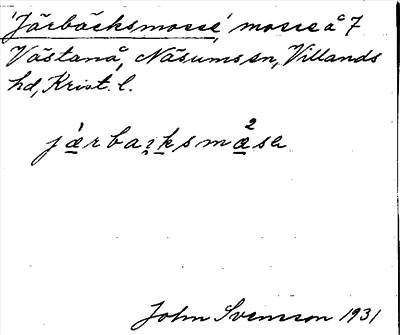 'Järbäcksmosse', mosse å 7
Västanå, Näsums sn, Villands
hd, Krist. l.
järbaꝛksmæ²sa
John Svensson 1931